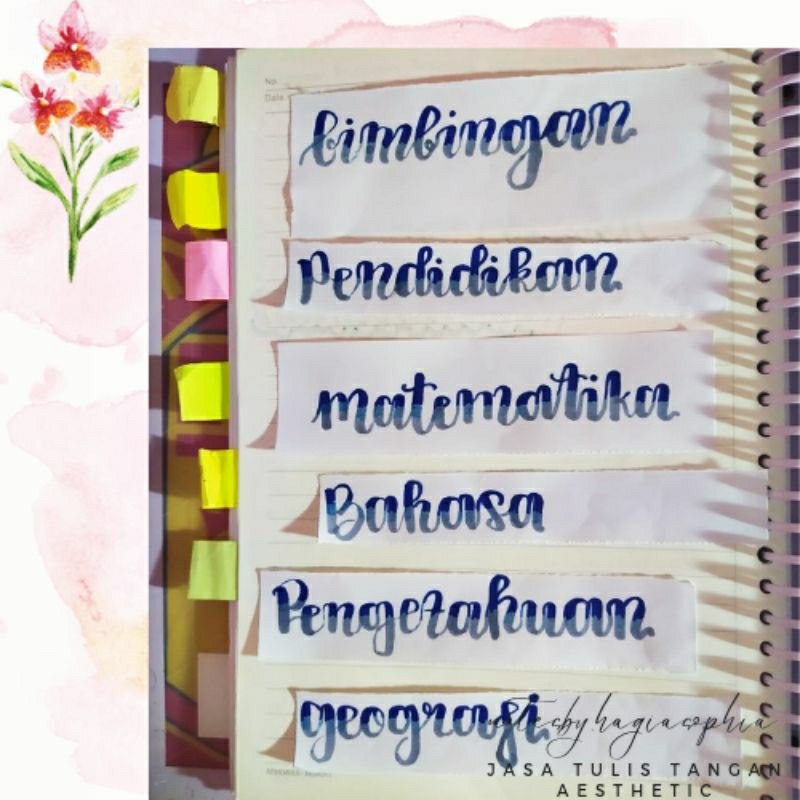 No.
Date
bimbingan
Pendidikan
matematika
Bahasa
Pengetahuan
geografi
notesby.hagiasophia
JASA TULIS TANGAN
AESTHETIC